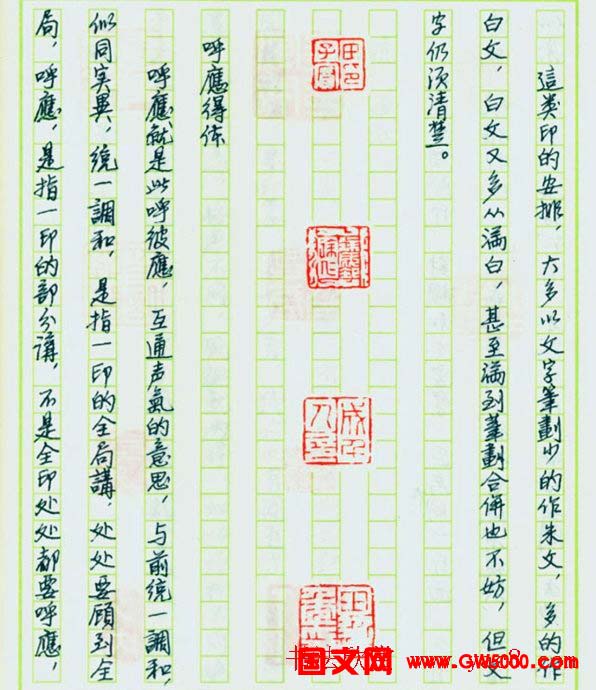 這类印的安排，大多以文字筆劃少的作朱文，多的作
白文，白文又多从满白，甚至满到筆劃合併也不妨，但文
字仍须清楚。
呼應得体
呼應就是此呼彼應，互通声氣的意思，与前统一調和，
似同实異，统一調和，是指一印的全局講，处处要顾到全
局，呼應，是指一印的部分講，不是全印处处都要呼應，
国文网 www.GW5000.com